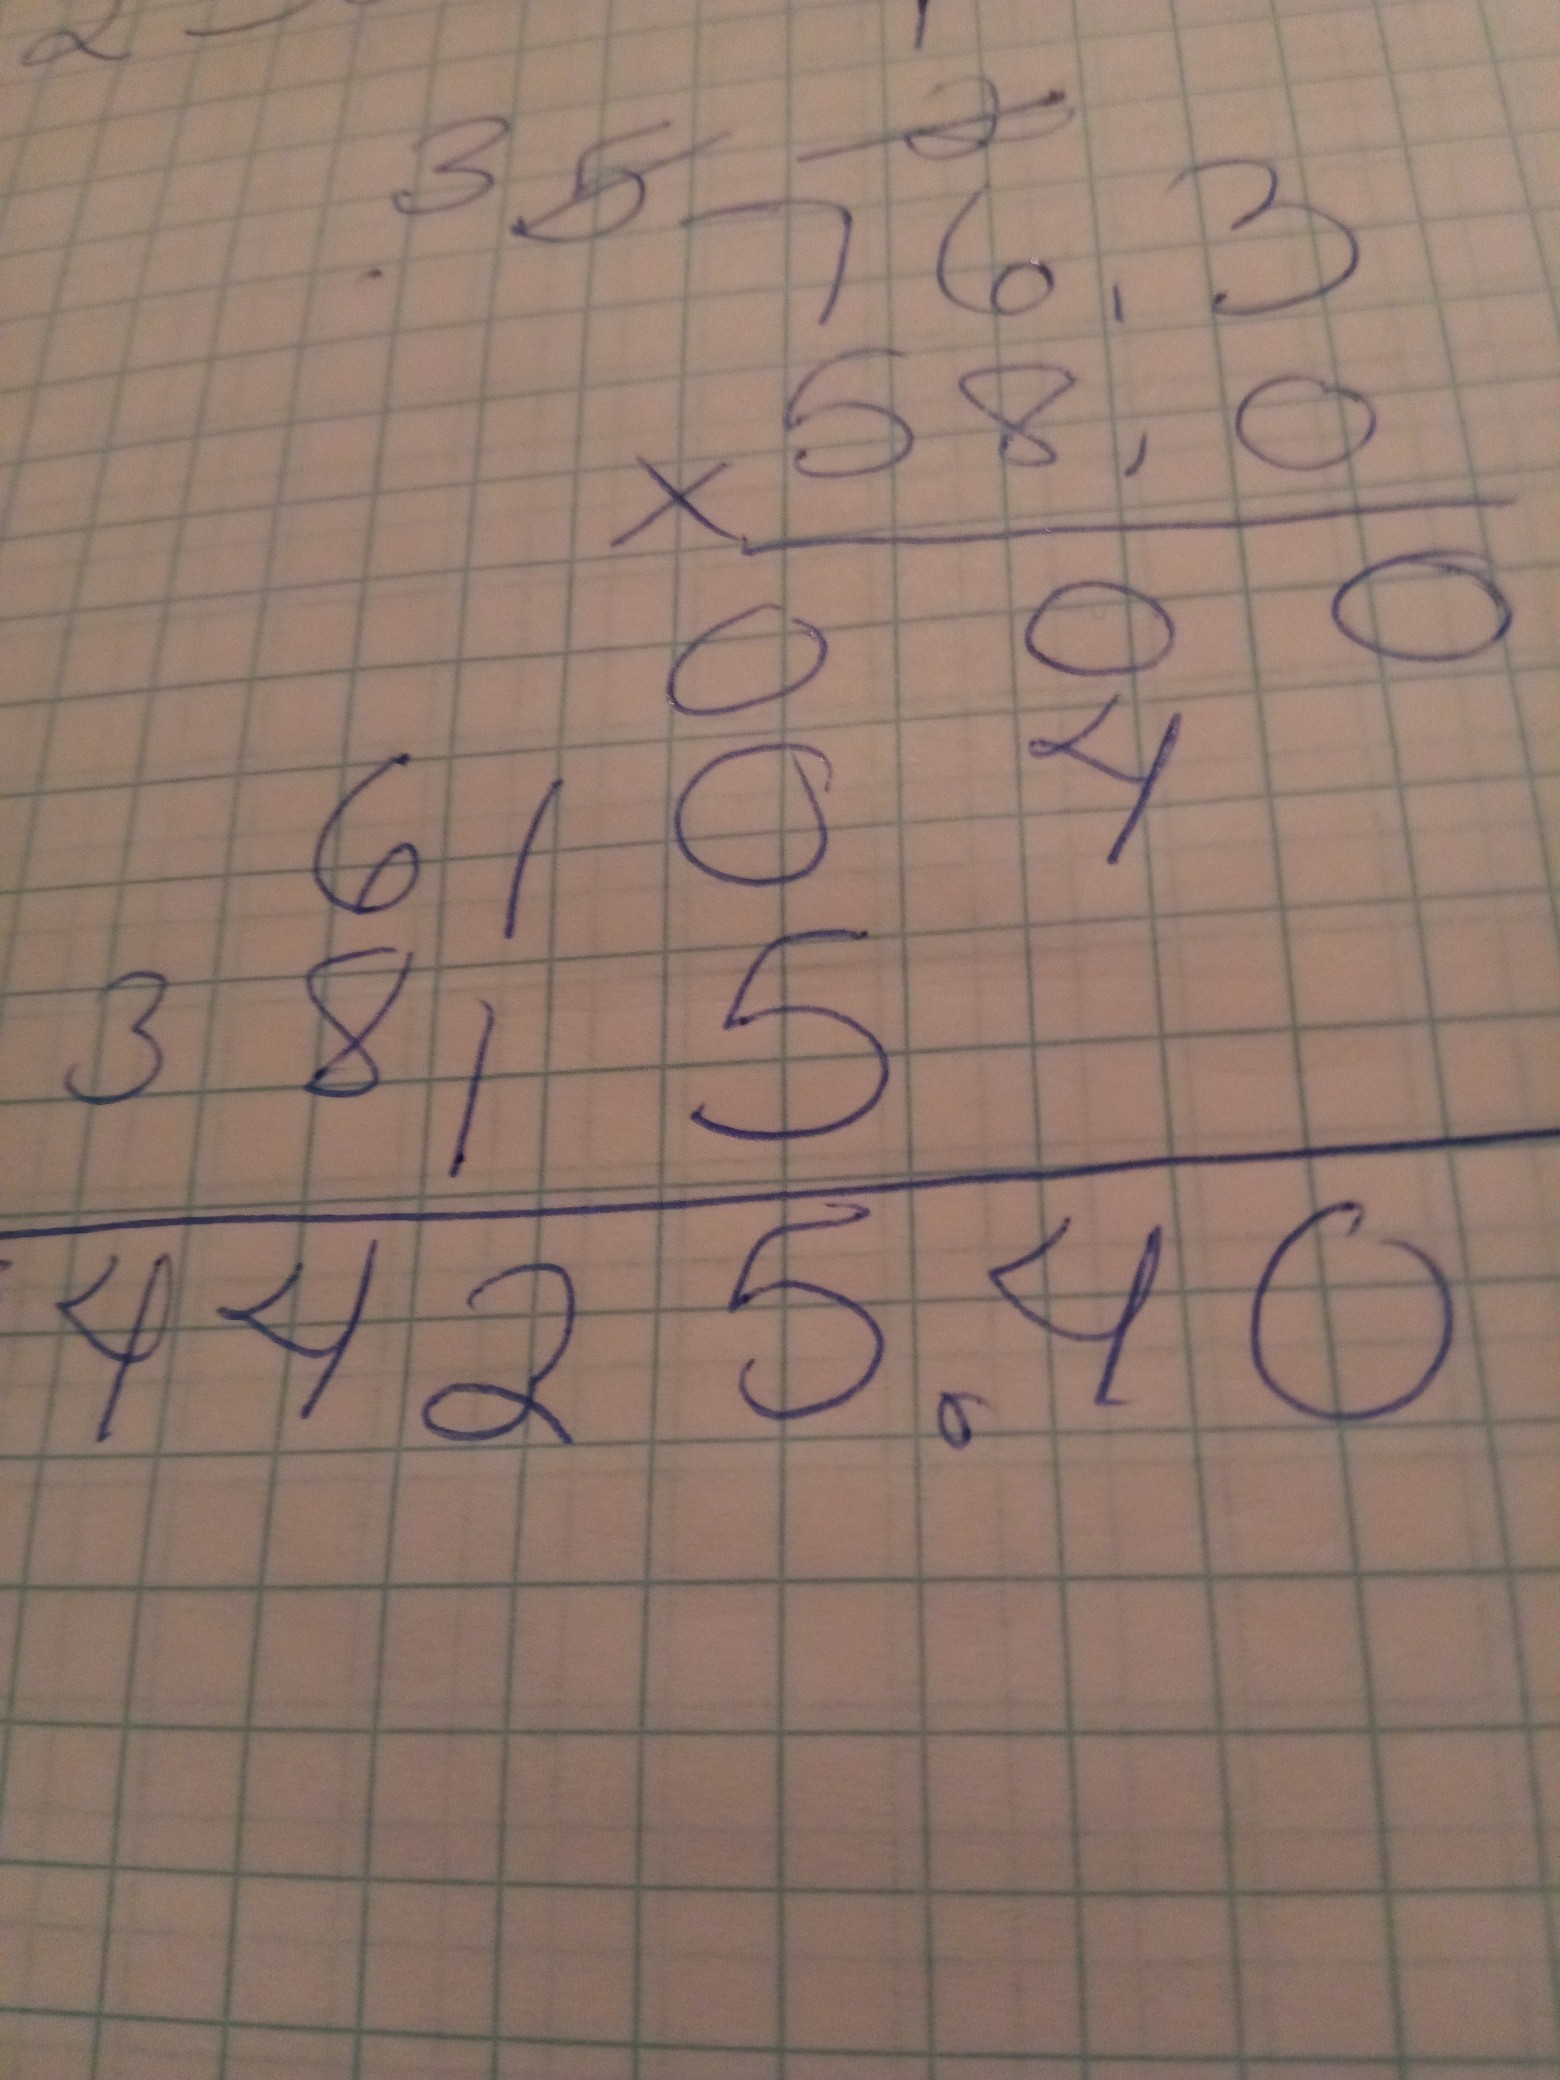 3 5 2
76,3
58,0
×
0 0 0
6 1 0 4
3 8 1 5
4 4 2 5.40